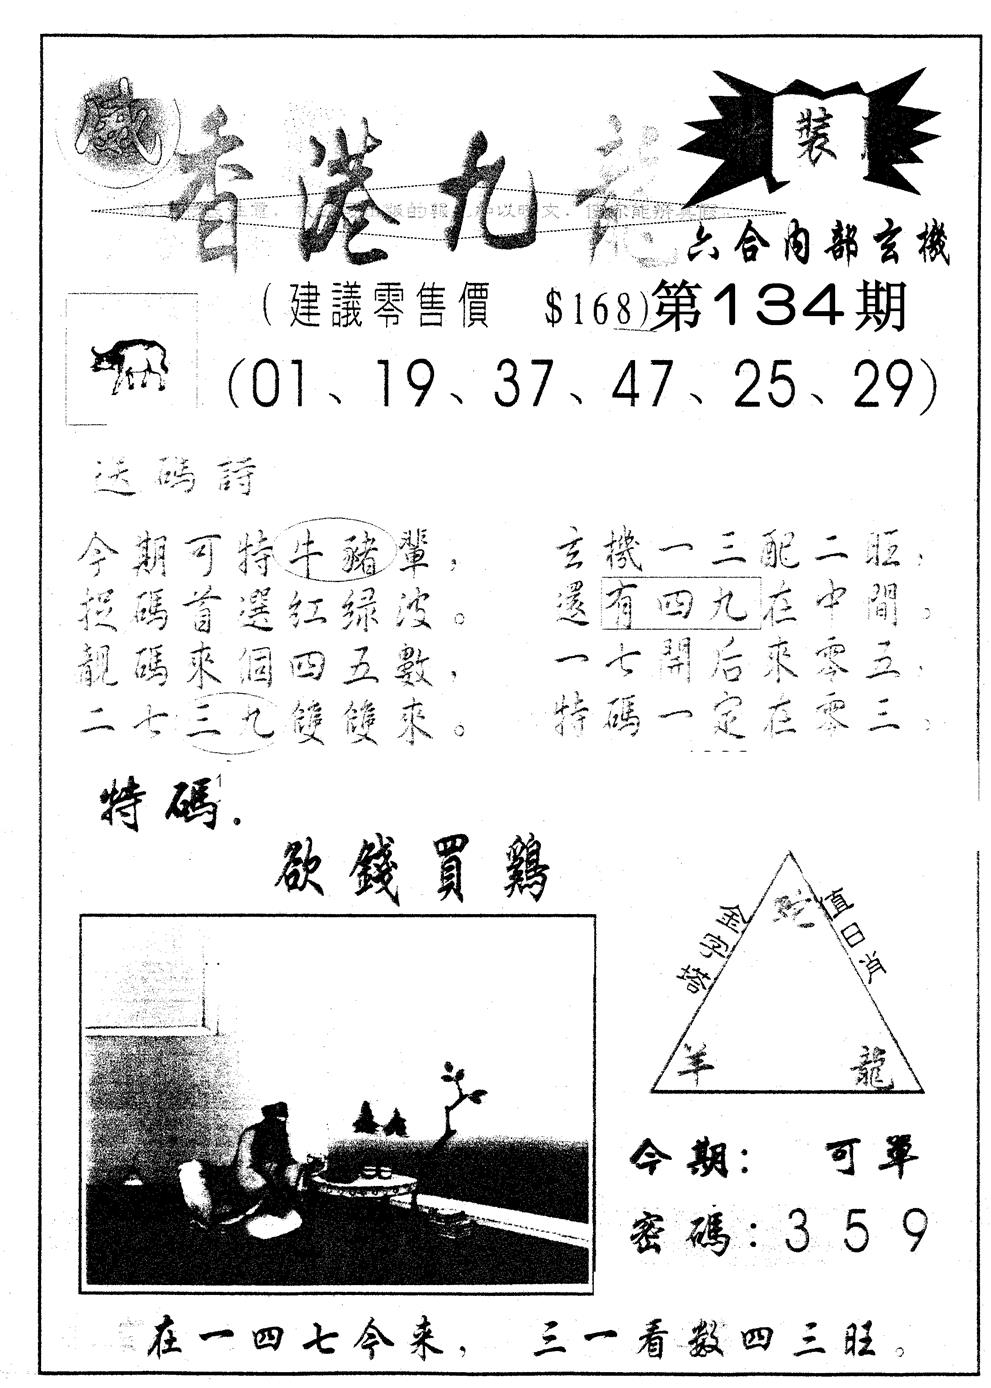 香港九龍
裝
六合內部玄機
(建議零售價 $168)第134期
(01、19、37、47、25、29)
送碼詩
今期可特牛豬輩，
捉碼首選紅绿波。
靚碼來個四五數，
二七三九雙雙來。
玄機一三配二旺，
還有四九在中間。
一七開后來零五，
特碼一定在零三。
特碼.
欲錢買鷄
金字塔
值日肖
蛇
羊 龍
今期: 可單
密碼:359
在一四七今来，三一看数四三旺。